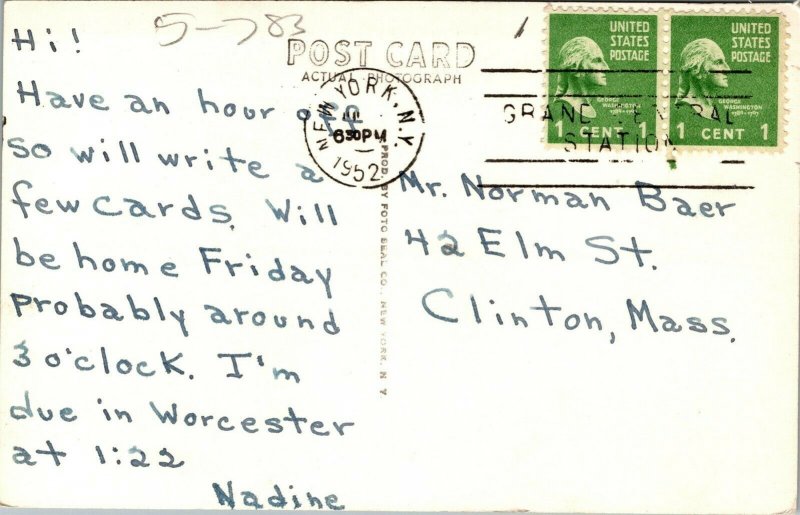 5-783
POST CARD
ACTUAL PHOTOGRAPH
UNITED STATES POSTAGE
GEORGE WASHINGTON
1789-1797
1 CENT 1
UNITED STATES POSTAGE
GEORGE WASHINGTON
1789-1797
1 CENT 1
NEW YORK, N.Y.
630PM
1952
GRAND CENTRAL
STATION
Hi!
Have an hour off
so will write a
few cards. Will
be home Friday
probably around
3 o'clock. I'm
due in Worcester
at 1:22
Nadine
PROD. BY FOTO SEAL CO., NEW YORK, N. Y.
Mr. Norman Baer
42 Elm St.
Clinton, Mass.